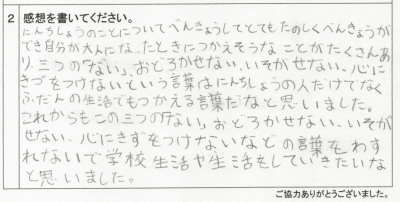 2 感想を書いてください。
にんちしょうのことについてべんきょうしてとてもたのしくべんきょうが
でき自分が大人になったときにつかえそうなことがたくさんあ
り三つの「ない」、おどろかせない、いそがせない、心に
きづをつけないという言葉はにんちしょうの人だけでなく
ふだんの生活でもつかえる言葉だなと思いました。
これからもこの三つの「ない」、おどろかせない、いそが
せない、心にきずをつけないなどの言葉をわす
れないで学校生活や生活をしていきたいな
と思いました。
ご協力ありがとうございました。